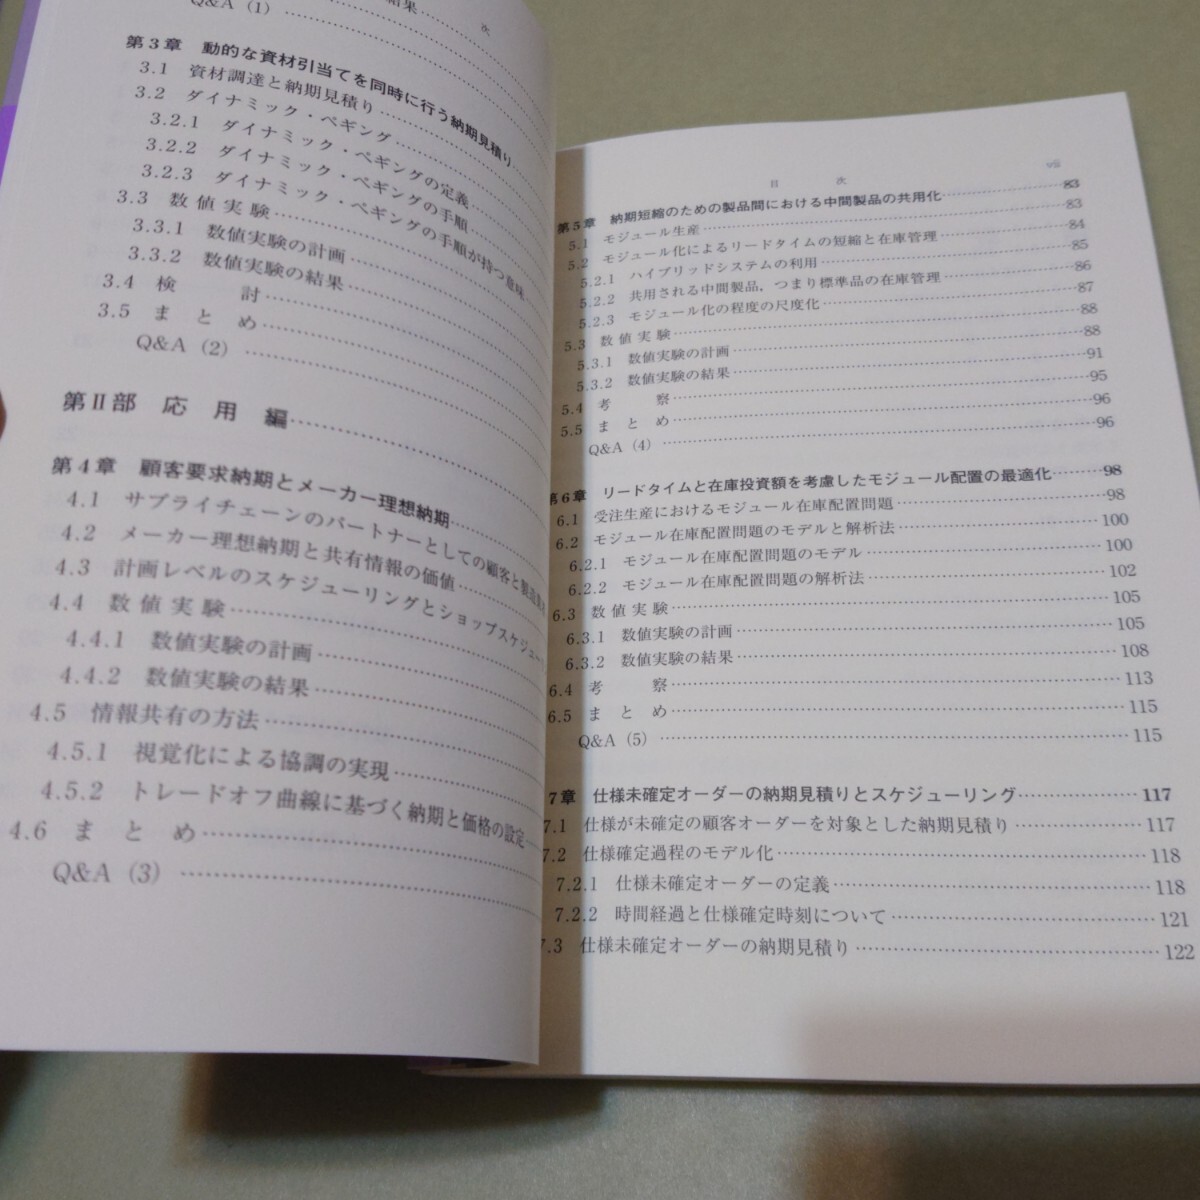 結果
次
Q&A（1）
第3章　動的な資材引当てを同時に行う納期見積り
3.1　資材調達と納期見積り
3.2　ダイナミック・ペギング
3.2.1　ダイナミック・ペギングの定義
3.2.2　ダイナミック・ペギングの手順
3.2.3　ダイナミック・ペギングの手順が持つ意味
3.3　数値実験
3.3.1　数値実験の計画
3.3.2　数値実験の結果
3.4　検　　討
3.5　ま　と　め
Q&A（2）
第Ⅱ部　応　用　編
第4章　顧客要求納期とメーカー理想納期
4.1　サプライチェーンのパートナーとしての顧客と製造
4.2　メーカー理想納期と共有情報の価値
4.3　計画レベルのスケジューリングとショップスケジュー
4.4　数値実験
4.4.1　数値実験の計画
4.4.2　数値実験の結果
4.5　情報共有の方法
4.5.1　視覚化による協調の実現
4.5.2　トレードオフ曲線に基づく納期と価格の設定
4.6　ま　と　め
Q&A（3）
目　次　vii
第5章　納期短縮のための製品間における中間製品の共用化 83
5.1　モジュール生産 83
5.2　モジュール化によるリードタイムの短縮と在庫管理 84
5.2.1　ハイブリッドシステムの利用 85
5.2.2　共用される中間製品，つまり標準品の在庫管理 86
5.2.3　モジュール化の程度の尺度化 87
5.3　数値実験 88
5.3.1　数値実験の計画 88
5.3.2　数値実験の結果 91
5.4　考　　察 95
5.5　ま　と　め 96
Q&A（4） 96
第6章　リードタイムと在庫投資額を考慮したモジュール配置の最適化 98
6.1　受注生産におけるモジュール在庫配置問題 98
6.2　モジュール在庫配置問題のモデルと解析法 100
6.2.1　モジュール在庫配置問題のモデル 100
6.2.2　モジュール在庫配置問題の解析法 102
6.3　数値実験 105
6.3.1　数値実験の計画 105
6.3.2　数値実験の結果 108
6.4　考　　察 113
6.5　ま　と　め 115
Q&A（5） 115
7章　仕様未確定オーダーの納期見積りとスケジューリング 117
7.1　仕様が未確定の顧客オーダーを対象とした納期見積り 117
7.2　仕様確定過程のモデル化 118
7.2.1　仕様未確定オーダーの定義 118
7.2.2　時間経過と仕様確定時刻について 121
7.3　仕様未確定オーダーの納期見積り 122